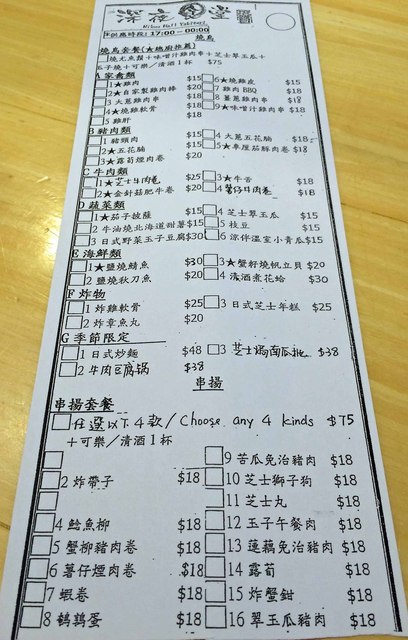 深夜食堂
供應時段: 17:00 — 00:00
燒鳥
燒鳥套餐(★總廚推薦)
燒尤魚鬚+味噌汁雞肉串+芝士翠玉瓜+
玉子燒+可樂/清酒1杯 $75
A 家禽類
1★雞肉 $15 6★燒雞皮 $15
2★自家製雞肉棒 $20 7雞肉BBQ $18
3大蔥雞肉串 $18 8薑蔥雞肉串 $18
4★燒雞軟骨 $18 9★味噌汁雞肉串 $18
5 雞肝 $18
B 豬肉類
1 豬頸肉 $20 4 大蔥五花腩 $18
2★五花腩 $15 5★車厘茄豚肉卷 $18
3★露筍煙肉卷 $20
C 牛肉類
1★芝士牛肉卷 $25 3★牛舌 $18
2★金針菇肥牛卷 $20 4 薯仔牛肉卷 $18
D 蔬菜類
1★茄子披薩 $15 4 芝士翠玉瓜 $15
2 牛油燒北海道甜薯 $15 5 枝豆 $15
3 日式野菜玉子豆腐 $30 6 涼伴溫室小青瓜 $15
E 海鮮類
1★鹽燒鯖魚 $30 3★蟹籽燒帆立貝 $20
2 鹽燒秋刀魚 $20 4 清酒煮花蛤 $30
F 炸物
1 炸雞軟骨 $25 3 日式芝士年糕 $25
2 炸章魚丸 $20
G 季節限定
1 日式炒麵 $48 3 芝士焗南瓜批 $38
2 牛肉豆腐鍋 $38
串揚
串揚套餐
任選以下4款/Choose any 4 kinds $75
+可樂/清酒1杯
9 苦瓜免治豬肉 $18
2 炸帶子 $18 10 芝士獅子狗 $18
11 芝士丸 $18
4 鯰魚柳 $18 12 玉子午餐肉 $18
5 蟹柳豬肉卷 $18 13 蓮藕免治豬肉 $18
6 薯仔煙肉卷 $18 14 露筍 $18
7 蝦卷 $18 15 炸蟹鉗 $18
8 鵪鶉蛋 $18 16 翠玉瓜豬肉 $18